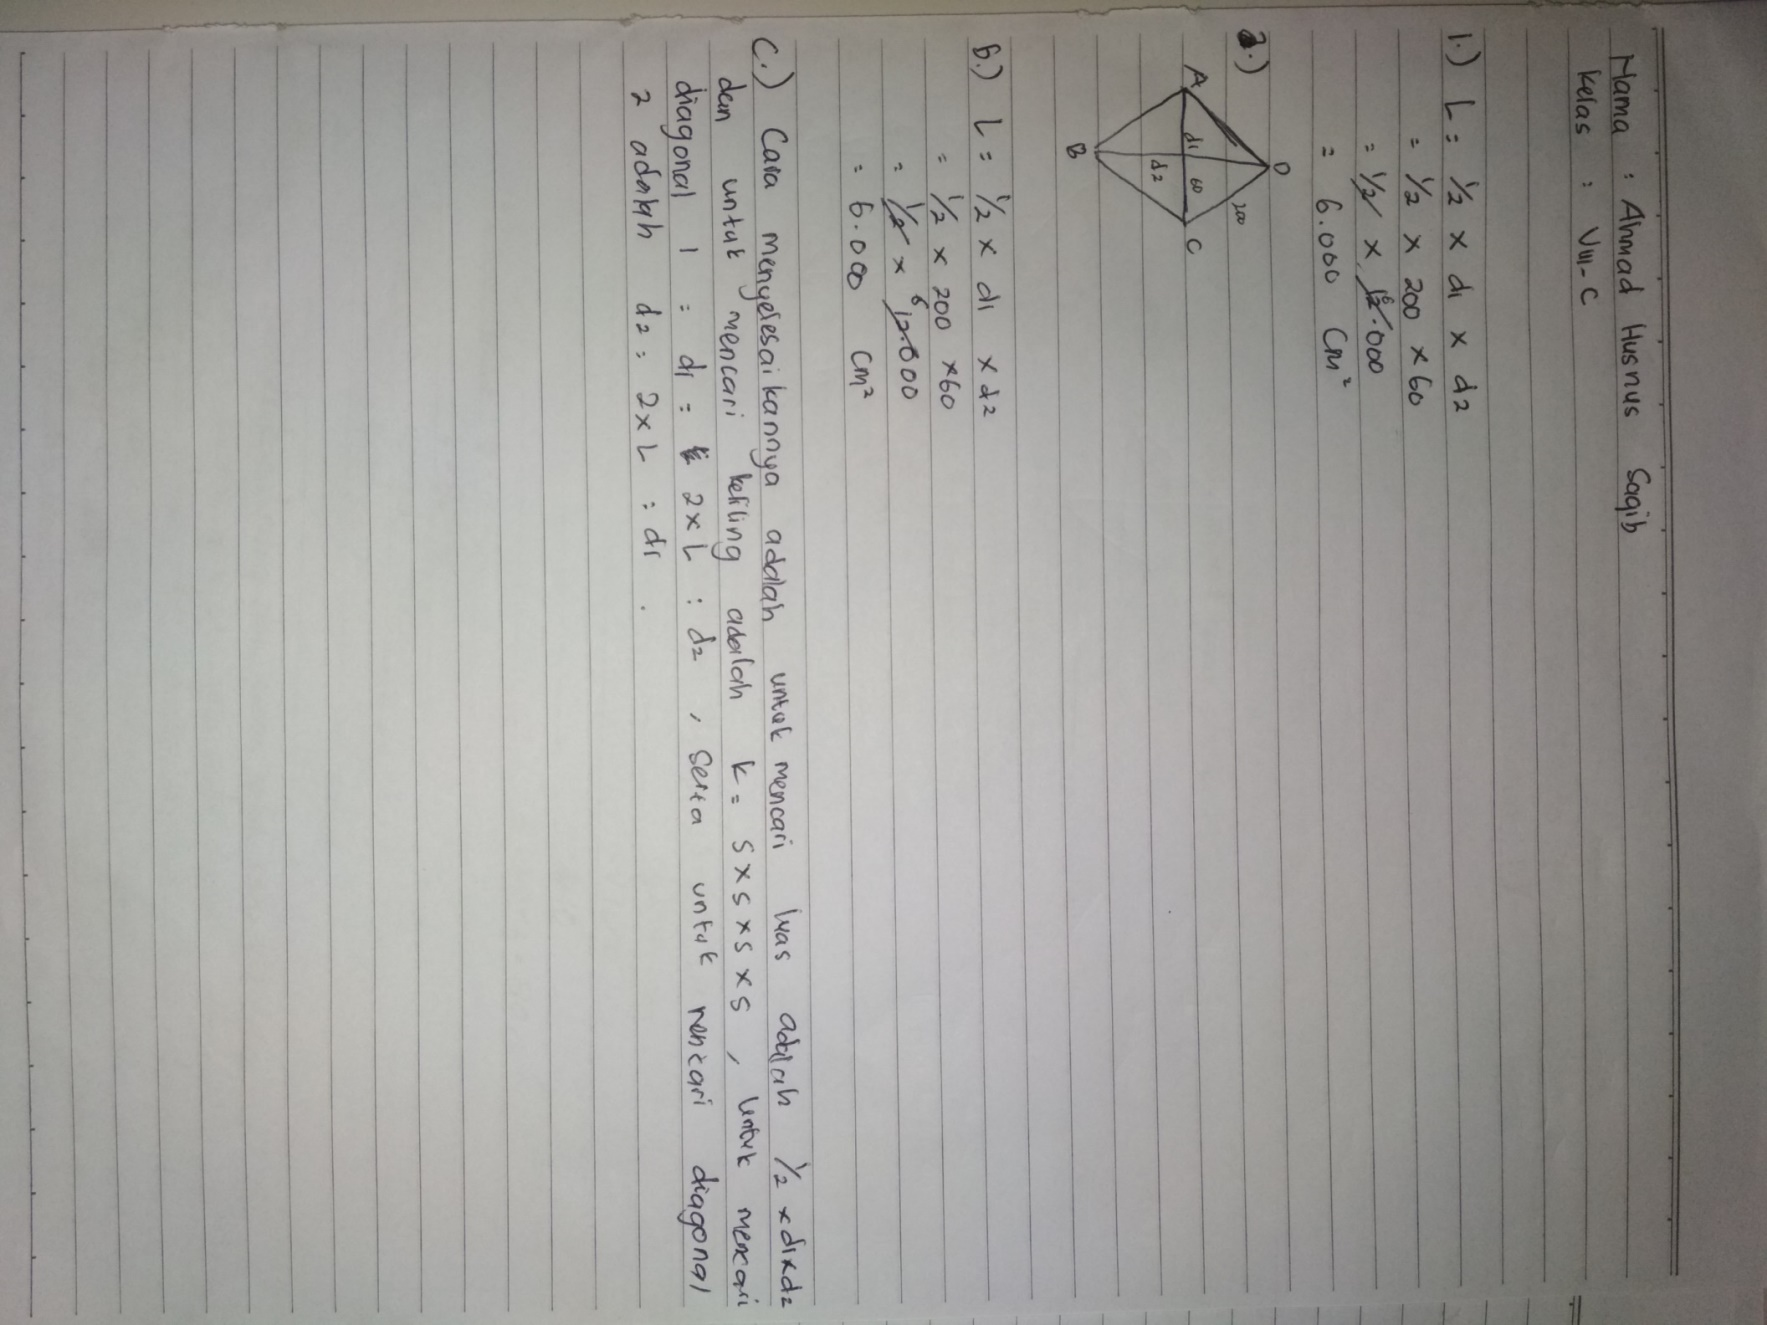 Nama : Ahmad Husnus Saqib
kelas : VIII-C
1.) L = 1/2 x d1 x d2
= 1/2 x 200 x 60
= 1/2 x 12.000
= 6.000 cm²
a.)
A
D
200
d1
60
d2
C
B
b.) L = 1/2 x d1 x d2
= 1/2 x 200 x 60
= 1/2 x 12.000
= 6.000 cm²
C.) Cara menyelesaikannya adalah untuk mencari luas adalah 1/2 x d1 x d2
dan untuk mencari keliling adalah k = s x s x s x s , untuk mencari
diagonal 1 : d1 = 2 x L : d2 , serta untuk mencari diagonal
2 adalah d2 = 2 x L : d1 .